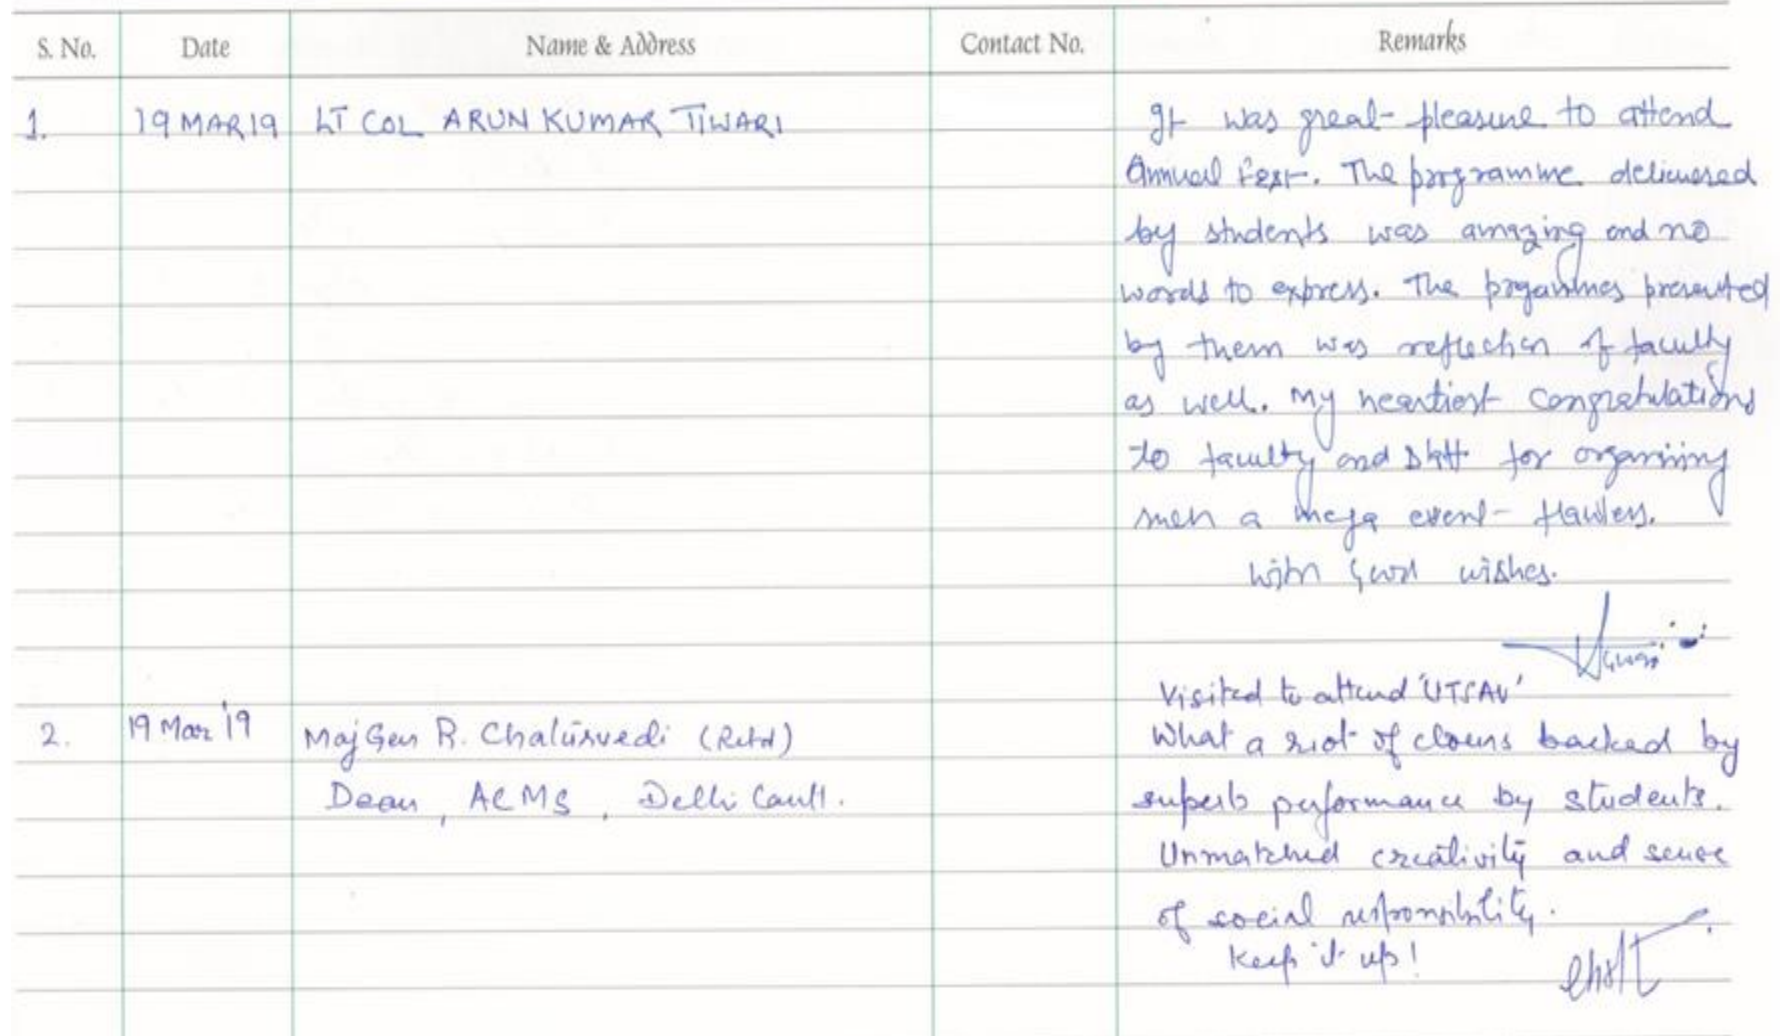 S. No. Date Name & Address Contact No. Remarks
1. 19 MAR 19 LT COL ARUN KUMAR TIWARI It was great pleasure to attend
Annual Fest. The programme delivered
by students was amazing and no
words to express. The progammes presented
by them was reflection of faculty
as well. My heartiest Congratulations
to faculty and staff for organising
such a mega event flawless.
With Good wishes.
Visited to attend 'UTSAV'
2. 19 Mar '19 Maj Gen R. Chaturvedi (Retd) What a riot of clowns backed by
Dean, ACMS, Delhi Cantt. superb performance by students.
Unmatched creativity and sense
of social responsibility.
Keep it up!